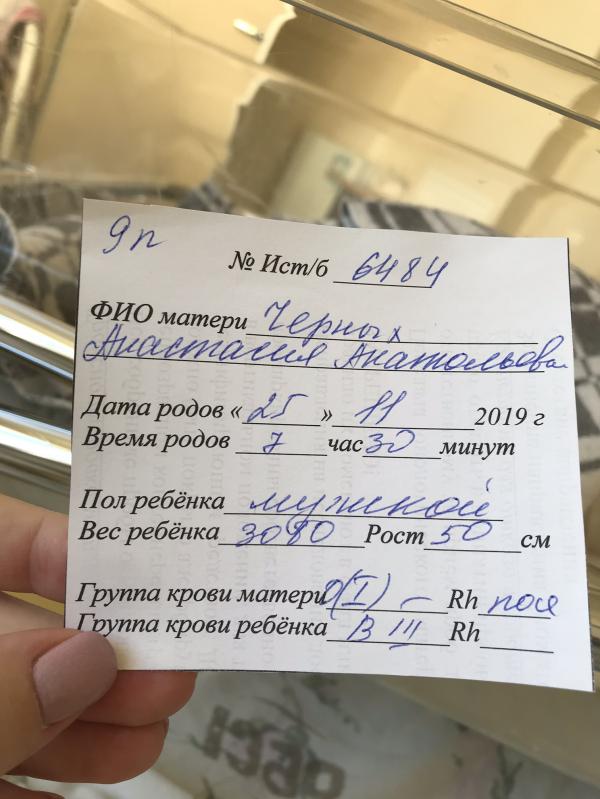 9п
№ Ист/б 6484
ФИО матери Черных
Анастасия Анатольевна
Дата родов « 25 » 11 2019 г
Время родов 7 час 30 минут
Пол ребёнка мужской
Вес ребёнка 3080 Рост 50 см
Группа крови матери 0(I) – Rh пол
Группа крови ребёнка B III Rh